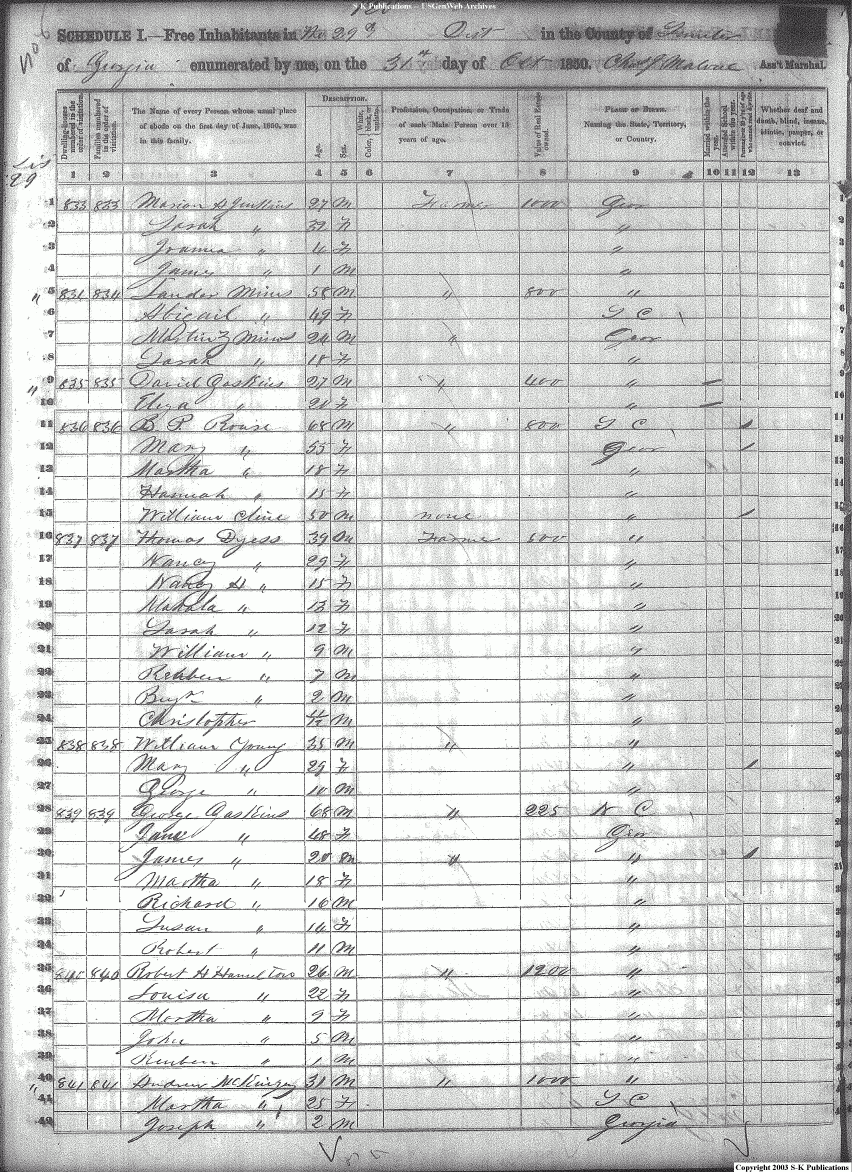 S K Publications -- USGenWeb Archives
SCHEDULE I.—Free Inhabitants in The 29th Dist in the County of Sumter
of Georgia enumerated by me, on the 31st day of Oct 1850. Chas J Malone Ass't Marshal.
Dwelling-houses numbered in the order of visitation. Families numbered in the order of visitation. The Name of every Person whose usual place of abode on the first day of June, 1850, was in this family. Description. Age. Sex. Color, White, black, or mulatto. Profession, Occupation, or Trade of each Male Person over 15 years of age. Value of Real Estate owned. Place of Birth. Naming the State, Territory, or Country. Married within the year. Attended School within the year. Whether deaf and dumb, blind, insane, idiotic, pauper, or convict.
1 2 3 4 5 6 7 8 9 10 11 12 13
1 833 833 Marion Jenkins 27 M Farmer 1000 Geor
2 Sarah " F "
3 " 4 F "
4 James " 1 M "
5 831 834 Mims 58 M " 800 "
6 Abigail " 49 F S C
7 Martin Z Mims 24 M " Geor
8 Sarah " 18 F "
9 835 835 David Gaskins 27 M " 400 "
10 Eliza " 21 F "
11 836 836 B. P. Rouse 68 M " 800 S C
12 Mary " 55 F Geor
13 Martha " 18 F "
14 Hannah " 15 F "
15 William Cline 50 M none "
16 837 837 Thomas Dyess 39 M Farmer 500 "
17 Nancy " 29 F "
18 Nancy H " 15 F "
19 Mahala " 13 F "
20 Sarah " 12 F "
21 William " 9 M "
22 " 7 M "
23 Benjn " 2 M "
24 Christopher M "
25 838 838 William Young 35 M " "
26 Mary " 29 F "
27 George " 10 M "
28 839 839 George Gaskins 68 M " 225 N C
29 Jane " 48 F Geor
30 James " 20 M " "
31 Martha " 18 F "
32 Richard " 16 M "
33 Susan " 14 F "
34 Robert " 11 M "
35 840 Robert H Hamilton 26 M " 1200 "
36 Louisa " 22 F "
37 Martha " 9 F "
38 John " 5 M "
39 Reuben " 1 M "
40 841 841 Andrew McKinzey 31 M " 1000 "
41 Martha " 25 F S C
42 Joseph " 2 M Georgia
Copyright 2003 S-K Publications